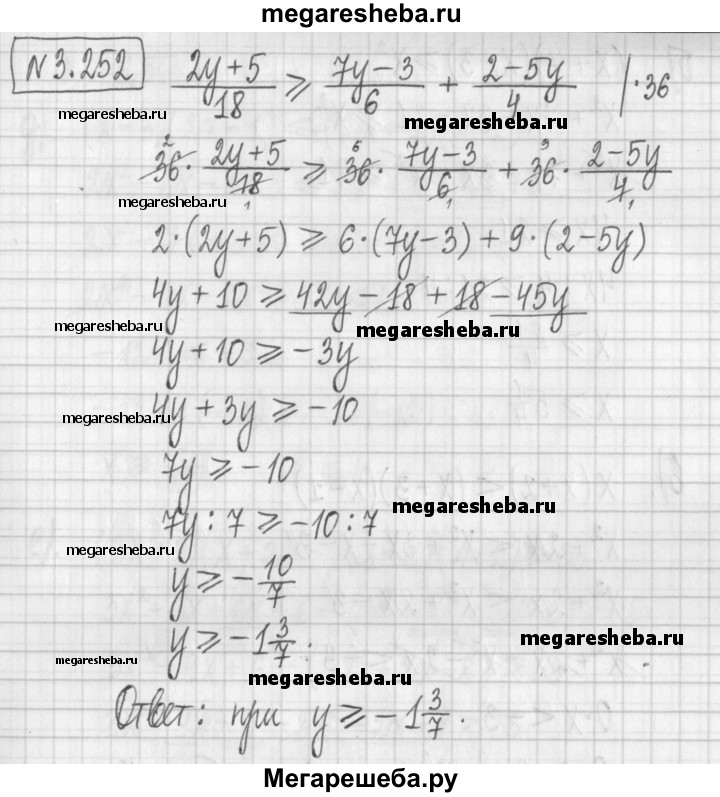 megaresheba.ru
№ 3.252 (2y+5)/18 ⩾ (7y−3)/6 + (2−5y)/4 |·36
megaresheba.ru megaresheba.ru
36² · (2y+5)/18₁ ⩾ 36⁶ · (7y−3)/6₁ + 36⁹ · (2−5y)/4₁
megaresheba.ru
2·(2y+5) ⩾ 6·(7y−3) + 9·(2−5y)
4y + 10 ⩾ 42y − 18 + 18 − 45y
megaresheba.ru megaresheba.ru
4y + 10 ⩾ −3y
4y + 3y ⩾ −10
megaresheba.ru
7y ⩾ −10
megaresheba.ru
7y : 7 ⩾ −10 : 7
megaresheba.ru
y ⩾ − 10/7
y ⩾ −1 3/7.
megaresheba.ru
megaresheba.ru
megaresheba.ru
Ответ: при y ⩾ −1 3/7.
Мегарешеба.ру